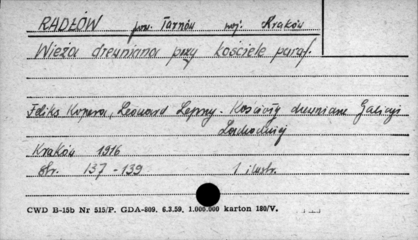 RADŁÓW pow. Tarnów woj. Kraków
Wieża drewniana przy kościele paraf.
Feliks Kopera, Leonard Lepszy - Kościoły drewniane Galicji
Zachodniej
Kraków 1916
Str. 137 - 139 1 ilustr.
CWD B-15b Nr 515/P. GDA-809. 6.3.59. 1.000.000 karton 180/V.